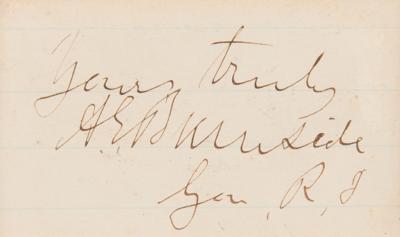 Yours truly
A E Burnside
Gov, R, I